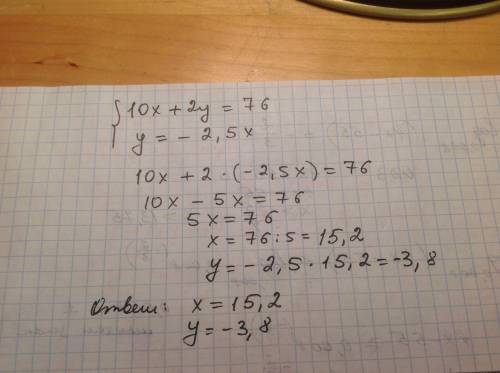 { 10x + 2y = 76
y = - 2,5x
10x + 2 · (-2,5x) = 76
10x - 5x = 76
5x = 76
x = 76 : 5 = 15,2
y = - 2,5 · 15,2 = -3,8
Ответ: x = 15,2
y = -3,8